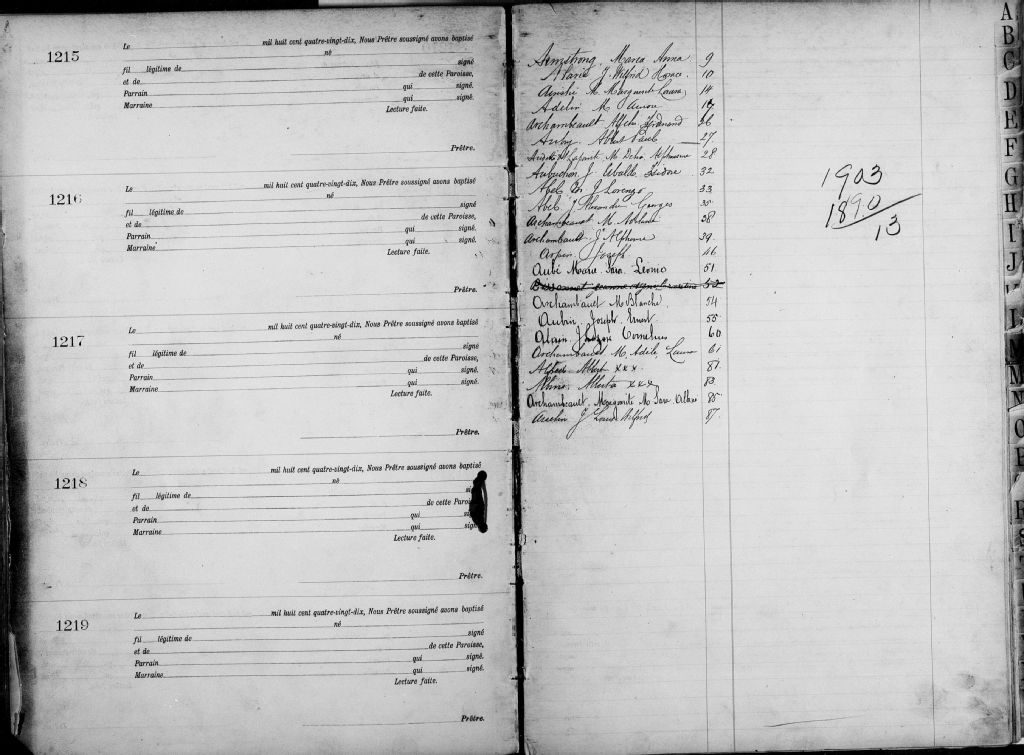 1215
Le mil huit cent quatre-vingt-dix, Nous Prêtre soussigné avons baptisé
né
signé
fil légitime de
et de de cette Paroisse,
Parrain qui signé.
Marraine qui signé.
Lecture faite.
Prêtre.
1216
Le mil huit cent quatre-vingt-dix, Nous Prêtre soussigné avons baptisé
né
signé
fil légitime de
et de de cette Paroisse,
Parrain qui signé.
Marraine qui signé.
Lecture faite.
Prêtre.
1217
Le mil huit cent quatre-vingt-dix, Nous Prêtre soussigné avons baptisé
né
signé
fil légitime de
et de de cette Paroisse,
Parrain qui signé.
Marraine qui signé.
Lecture faite.
Prêtre.
1218
Le mil huit cent quatre-vingt-dix, Nous Prêtre soussigné avons baptisé
né
fil légitime de
et de de cette
Parrain qui
Marraine qui
Lecture faite.
Prêtre.
1219
Le mil huit cent quatre-vingt-dix, Nous Prêtre soussigné avons baptisé
né
signé
fil légitime de
et de de cette Paroisse,
Parrain qui signé.
Marraine qui signé.
Lecture faite.
Prêtre.
Armstrong Maria Anna 9
J. Wilfrid Horace 10
M. Marguerite Laura 14
Adelin M. Aurore
Archambeault Ferdinand 26
Aubry Albert Paul 27
M. Delia Alphonsine 28
Aubuchon J. Ubald Isidore 32
Abel J. Lorenzo 33
Abel J. Alexandre Georges 35
Archambeault M. 38
Archambault J. Alphonse 39
Arpin Joseph 46
Aubé Marie Sara Léonie 51
Archambeault M. Blanche 54
Aubin Joseph Ernest 55
Alain J. Cornelius 60
Archambeault M. Adèle Laura 61
Albert xxx 81
Alberta xxx 83
Archambeault, Marguerite M. Sara 85
Asselin J. Louis Alfred 87
1903
1890
13
A
B
C
D
E
F
G
H
I
J
L
M
N
O
P
R
S
T